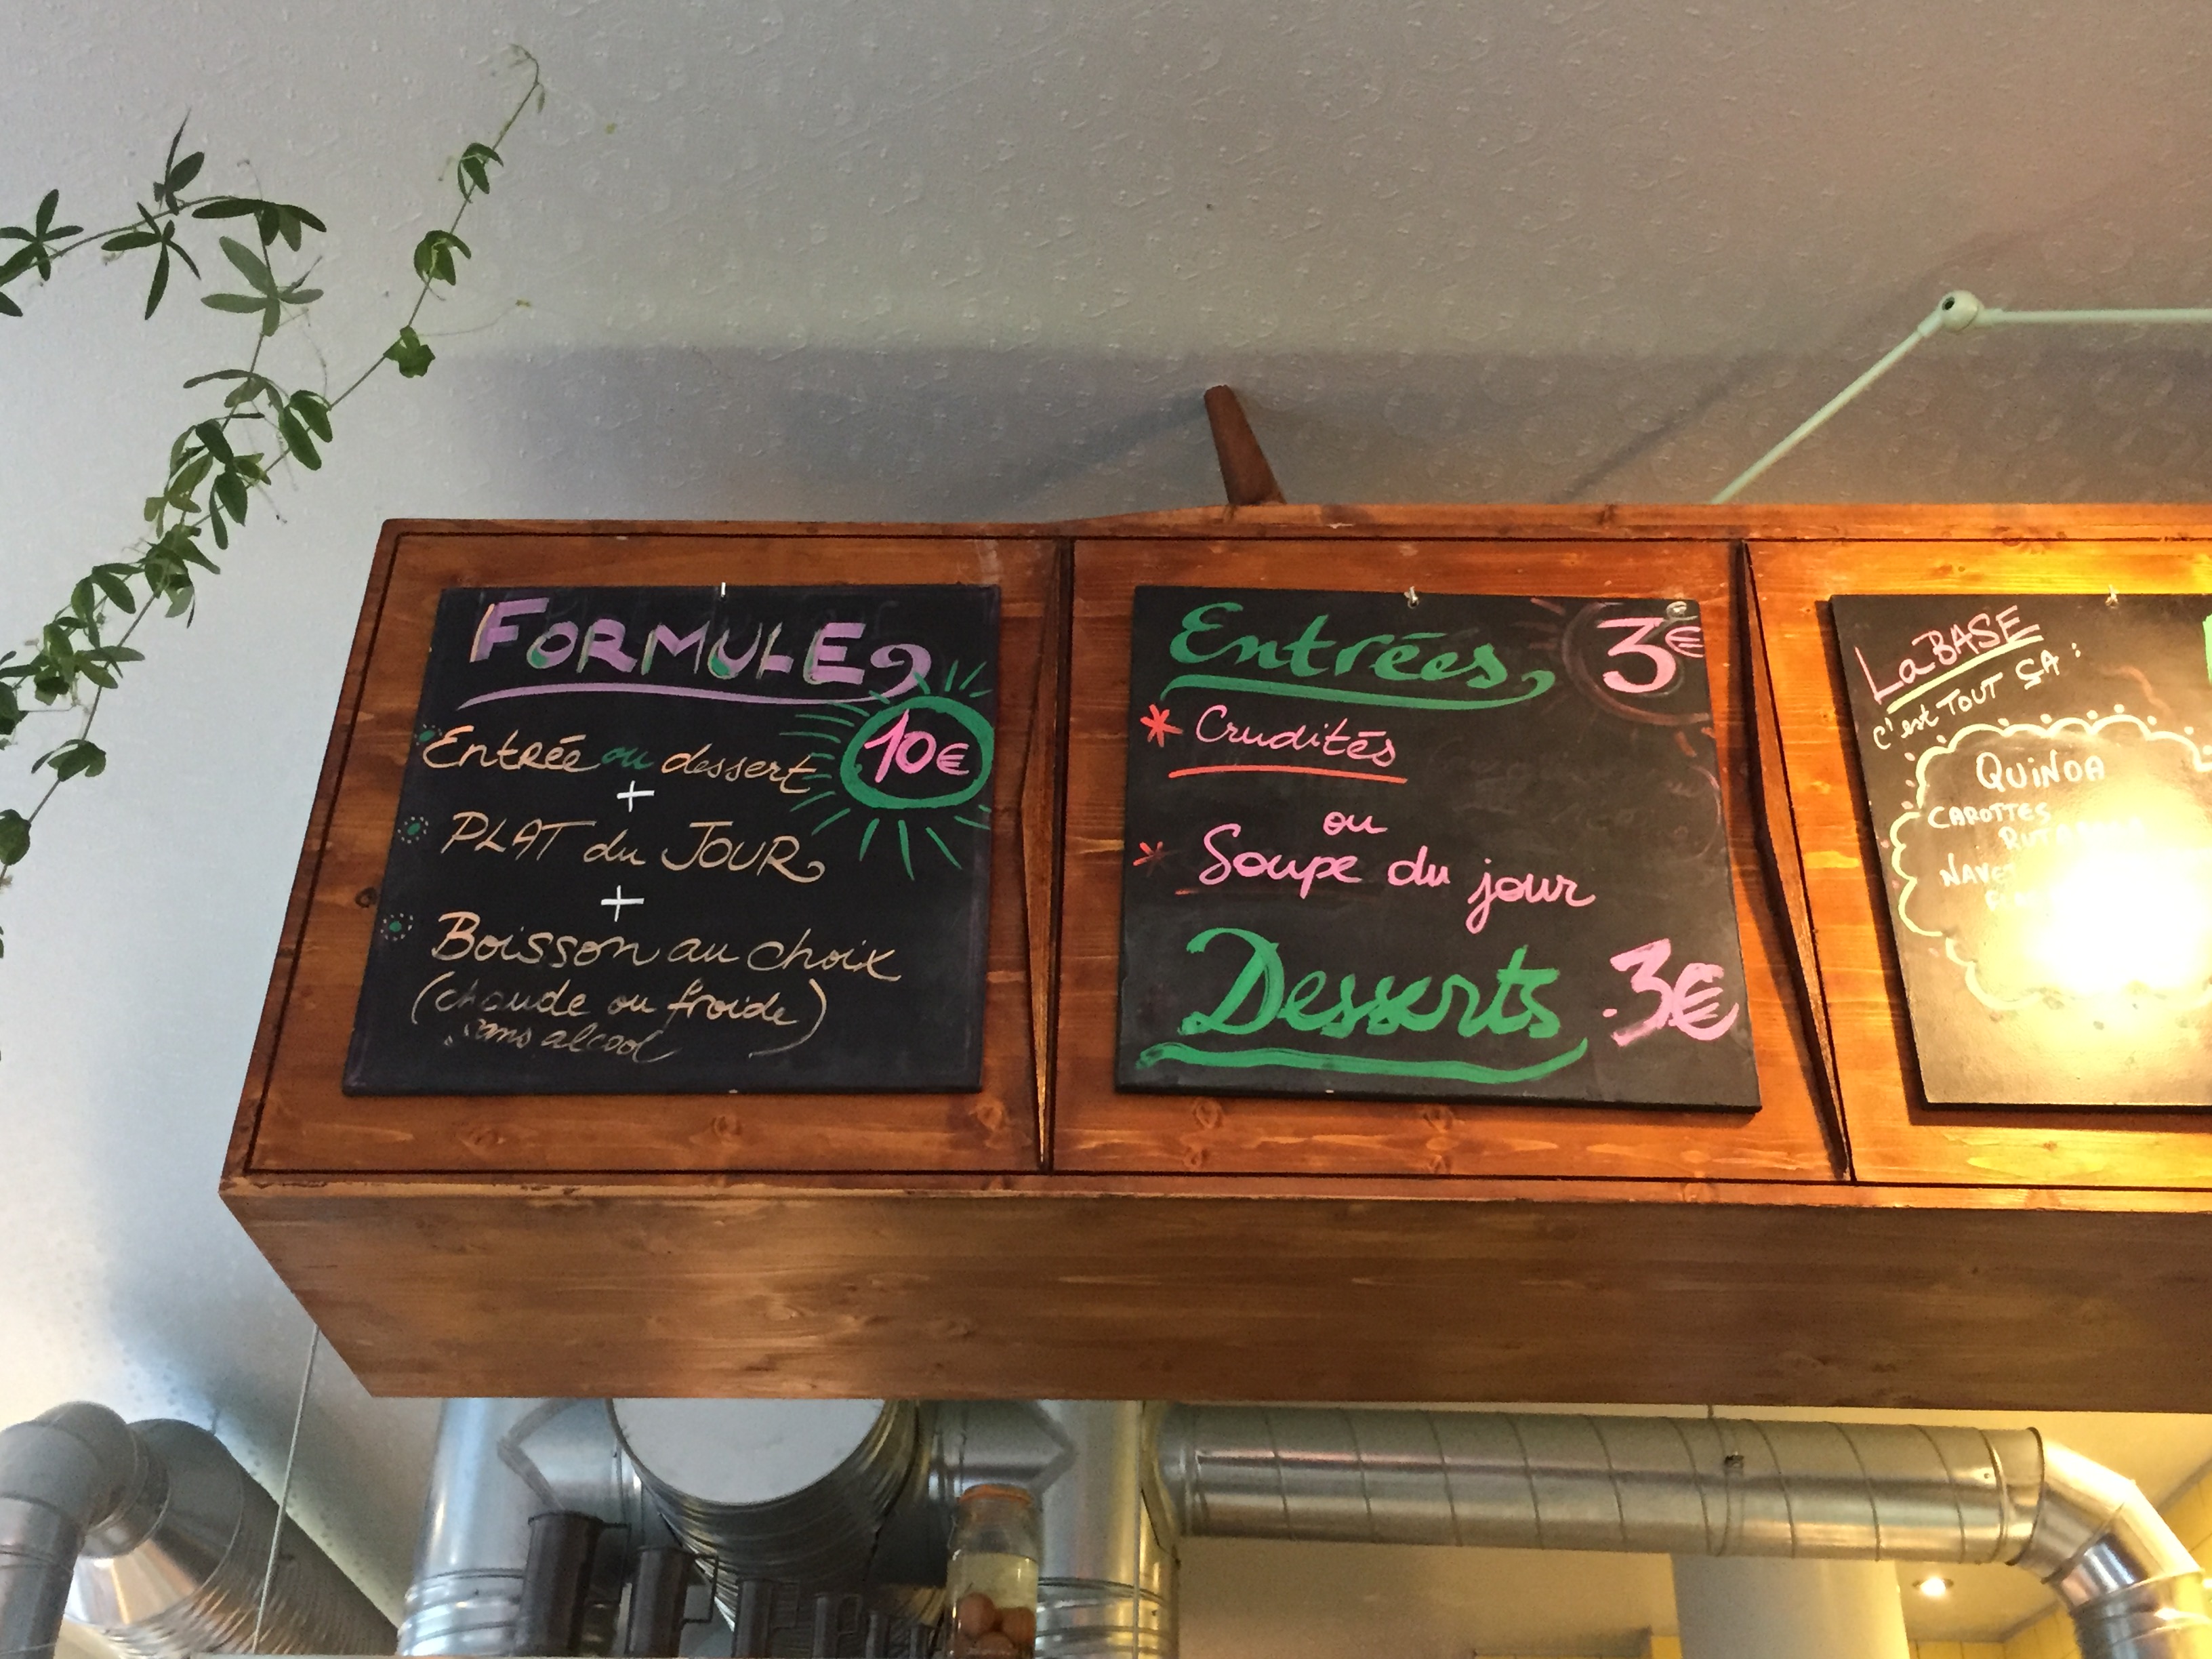 FORMULE
Entrée ou dessert
10€
+
PLAT du JOUR
+
Boisson au choix
(chaude ou froide)
sans alcool
Entrées 3€
Crudités
ou
Soupe du jour
Desserts 3€
La BASE
c'est TOUT ÇA :
QUINOA
CAROTTES